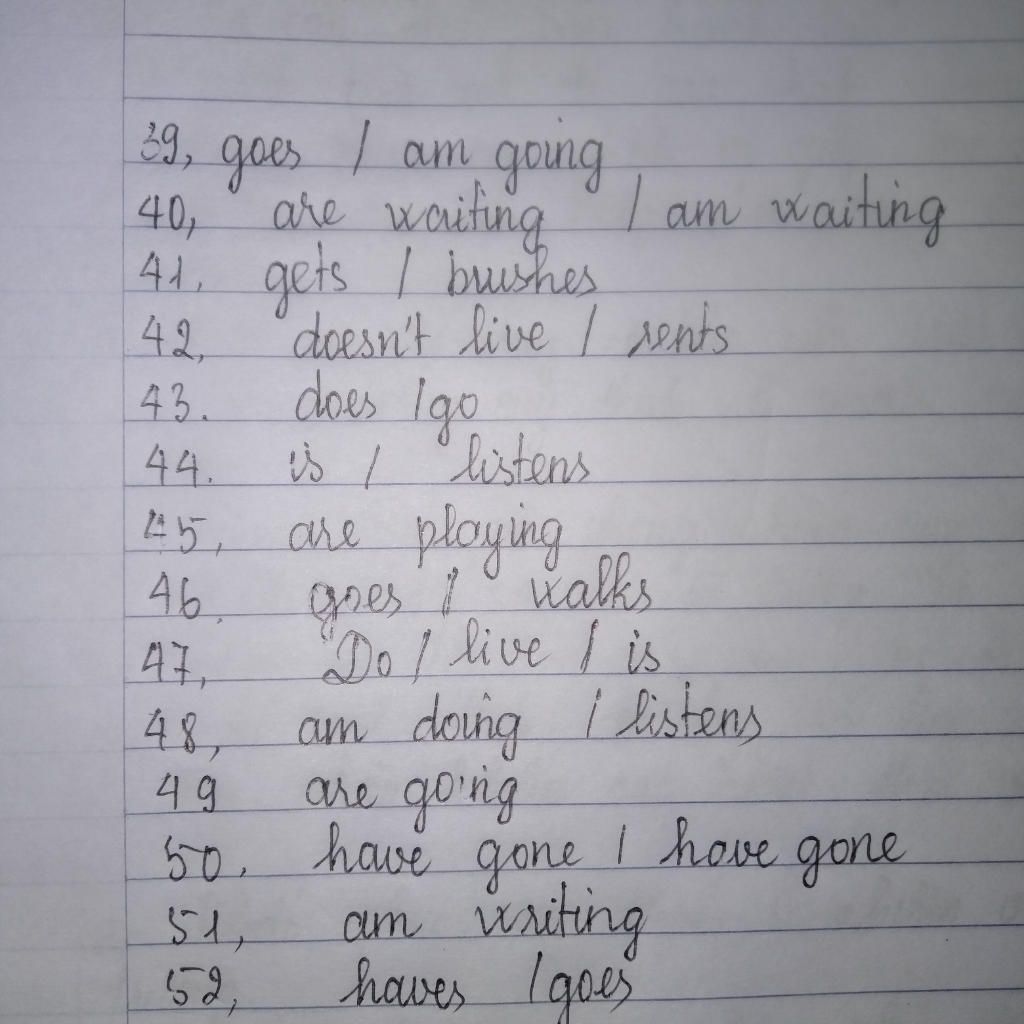 39, goes / am going
40, are waiting / am waiting
41. gets / brushes
42, doesn't live / rents
43. does / go
44. is / listens
45, are playing
46. goes / walks
47, Do / live / is
48, am doing / listens
49 are going
50, have gone / have gone
51, am writing
52, haves / goes